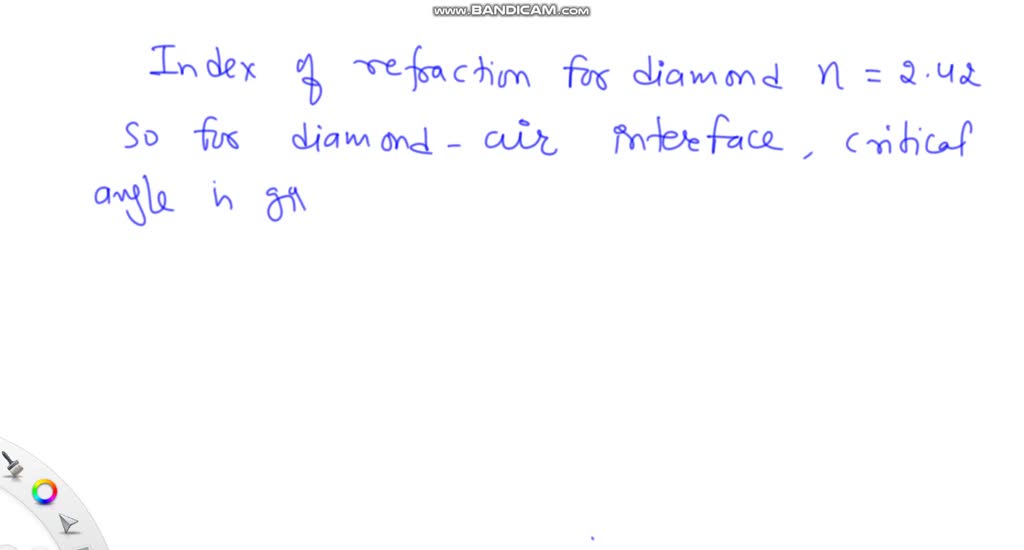 www.BANDICAM.com
Index of refraction for diamond n = 2.42
so for diamond - air interface, critical
angle is